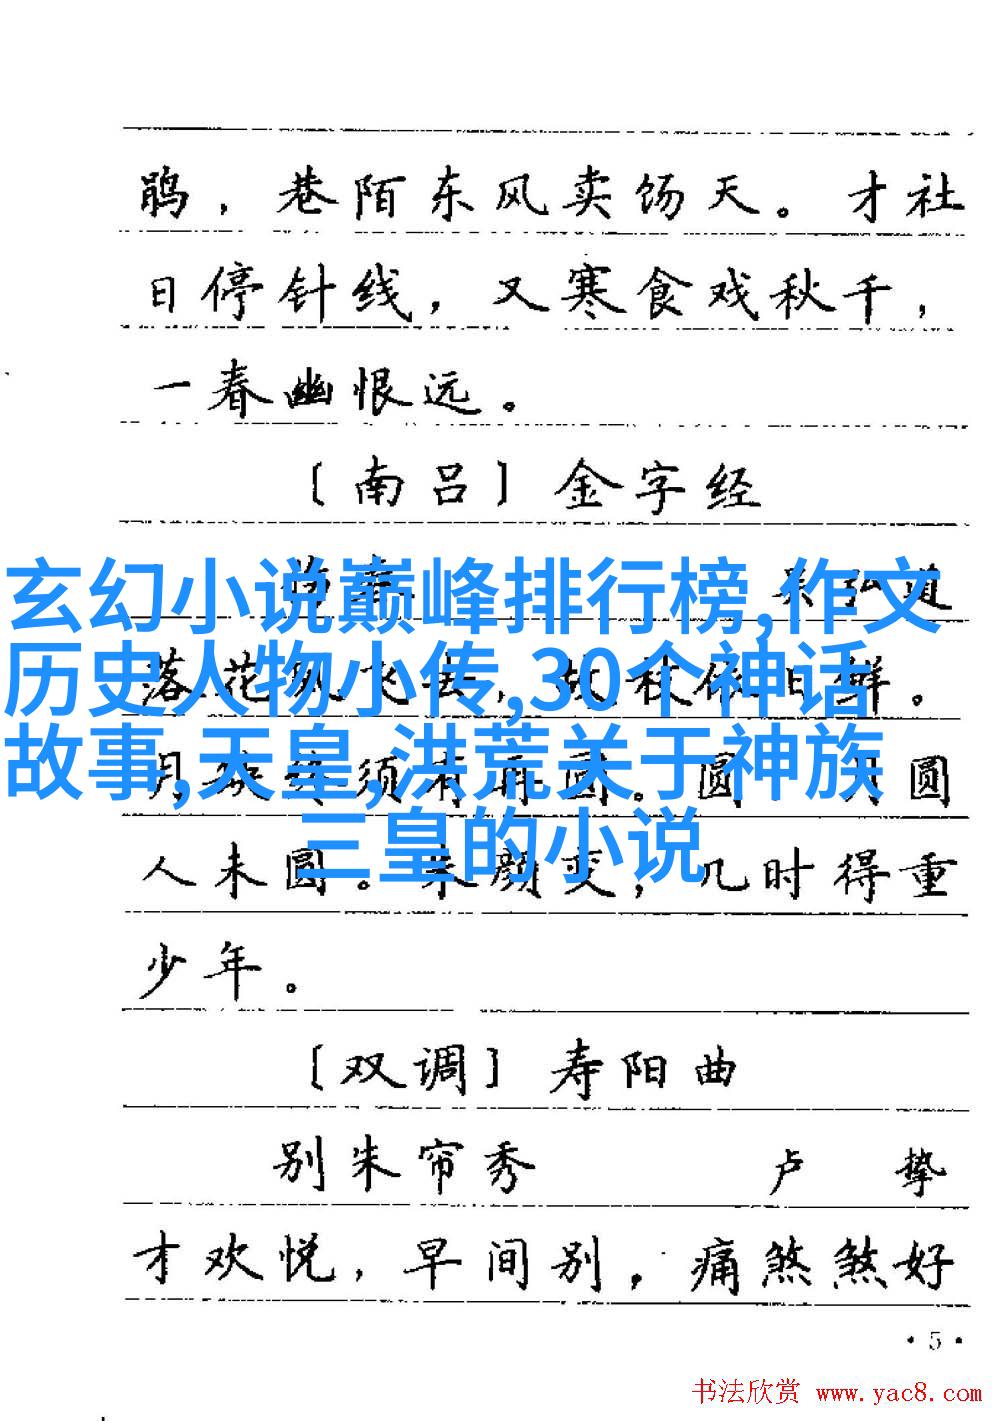 鹃，巷陌东风卖饧天。才社
日停针线，又寒食戏秋千，
一春幽恨远。
〔南吕〕金字经
玄幻小说巅峰排行榜,作文
吴弘道
历史人物小传,30个神话
落花
鲜。
故事,天皇,洪荒关于神族
须有再圆。圆 月圆
三皇的小说
人未圆。朱颜变，几时得重
少年。
〔双调〕寿阳曲
别朱帘秀 卢挚
才欢悦，早间别，痛煞煞好
·5·
书法欣赏 www.yac8.com